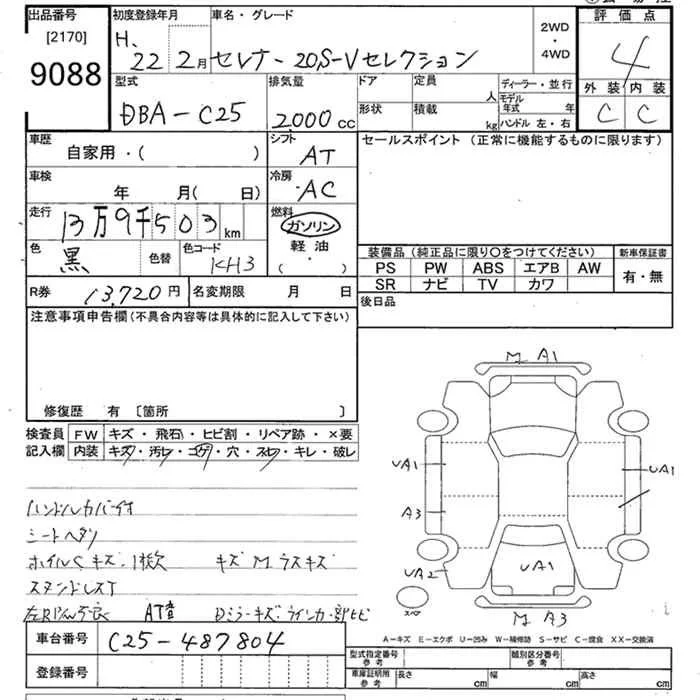 出品番号 初度登録年月 車名・グレード 2WD・4WD 評価点
[2170]
9088
H. 22 2月 セレナ-20S-Vセレクション 4
型式 排気量 ドア 定員 人 ディーラー・並行 外装 内装
DBA-C25 2000cc 形状 積載 kg モデル年式 年 C C
ハンドル 左・右
車歴 自家用・( ) シフト AT セールスポイント (正常に機能するものに限ります)
車検 年 月( 日) 冷房 AC
走行 13万9千503km 燃料 ガソリン 軽油 ( ・ )
色 黒 色替 色コード KH3
装備品(純正品に限り〇をつけてください) 新車保証書
PS PW ABS エアB AW 有・無
SR ナビ TV カワ
R券 13,720円 名変期限 月 日 後日品
注意事項申告欄(不具合内容等は具体的に記入して下さい)
修復歴 有 [箇所 ]
検査員記入欄 FW キズ・飛石・ヒビ割・リペア跡・×要
内装 キズ・汚レ・コゲ・穴・スレ・キレ・破レ
ハンドルカバー
シートヘタリ
ホイルCキズ
キズ M.ラスキズ
スタンドレス
AT
Dミラーキズ・ウインカー部ヒビ
M A1
UA1 UA1
A3
UA2 UA1
スペア
M A3
A-キズ E-エクボ U-凹み W-補修跡 S-サビ C-腐食 XX-交換済
車台番号 C25-487804
登録番号
型式指定番号 参考 類別区分番号 参考
車庫証明用 参考 長さ cm 幅 cm 高さ cm